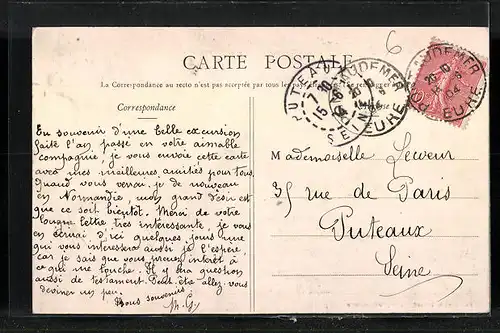 6
CARTE POSTALE
La Correspondance au recto n'est pas acceptée par tous les pays
Correspondance
PUTEAUX
7 30
15
SEINE
PONT-AUDEMER
20 10
EURE
PONT-AUDEMER
20 10
04
EURE
En souvenir d'une belle excursion
faite l'an passé en votre aimable
compagnie, je vous envoie cette carte
avec mes meilleures amitiés pour tous.
Quand vous verrai-je de nouveau
en Normandie, mon grand désir est
que ce soit bientôt. Merci de votre
longue lettre très intéressante, je vous
en écrirai d'ici quelques jours une
qui vous intéressera aussi je l'espère,
car je sais que vous prenez intérêt à
ce qui me touche. Il y sera question
aussi de testament. Peut-être allez-vous
deviner un peu.
Bons souvenirs
Mademoiselle Lecoeur
35 rue de Paris
Puteaux
Seine